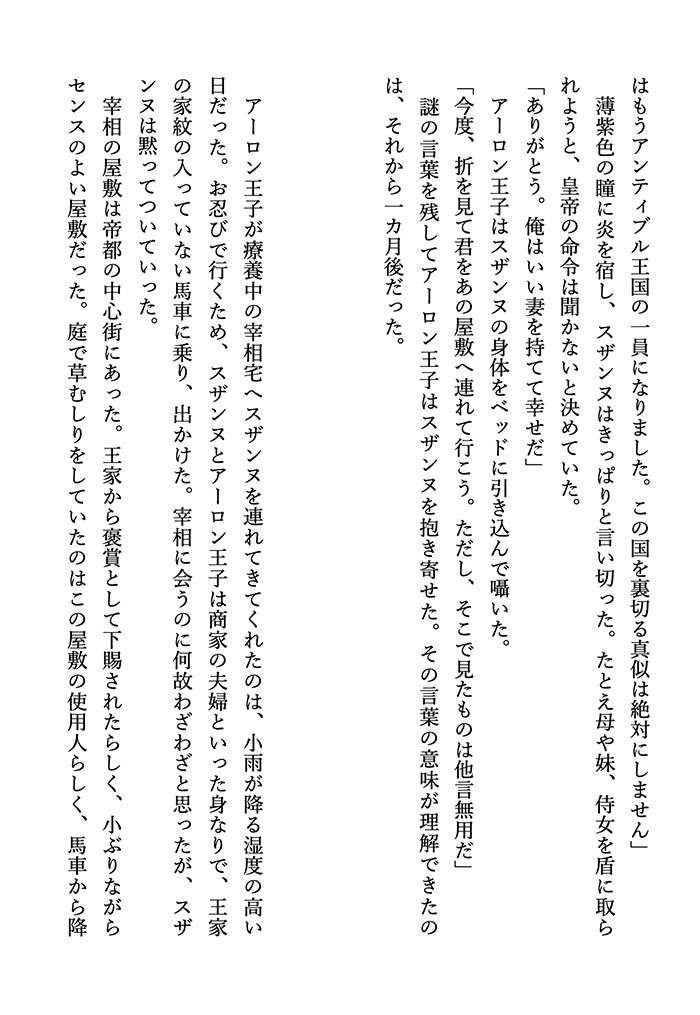 はもうアンティブル王国の一員になりました。この国を裏切る真似は絶対にしません」
　薄紫色の瞳に炎を宿し、スザンヌはきっぱりと言い切った。たとえ母や妹、侍女を盾に取ら
れようと、皇帝の命令は聞かないと決めていた。
「ありがとう。俺はいい妻を持てて幸せだ」
　アーロン王子はスザンヌの身体をベッドに引き込んで囁いた。
「今度、折を見て君をあの屋敷へ連れて行こう。ただし、そこで見たものは他言無用だ」
　謎の言葉を残してアーロン王子はスザンヌを抱き寄せた。その言葉の意味が理解できたの
は、それから一カ月後だった。
　アーロン王子が療養中の宰相宅へスザンヌを連れてきてくれたのは、小雨が降る湿度の高い
日だった。お忍びで行くため、スザンヌとアーロン王子は商家の夫婦といった身なりで、王家
の家紋の入っていない馬車に乗り、出かけた。宰相に会うのに何故わざわざと思ったが、スザ
ンヌは黙ってついていった。
　宰相の屋敷は帝都の中心街にあった。王家から褒賞として下賜されたらしく、小ぶりながら
センスのよい屋敷だった。庭で草むしりをしていたのはこの屋敷の使用人らしく、馬車から降